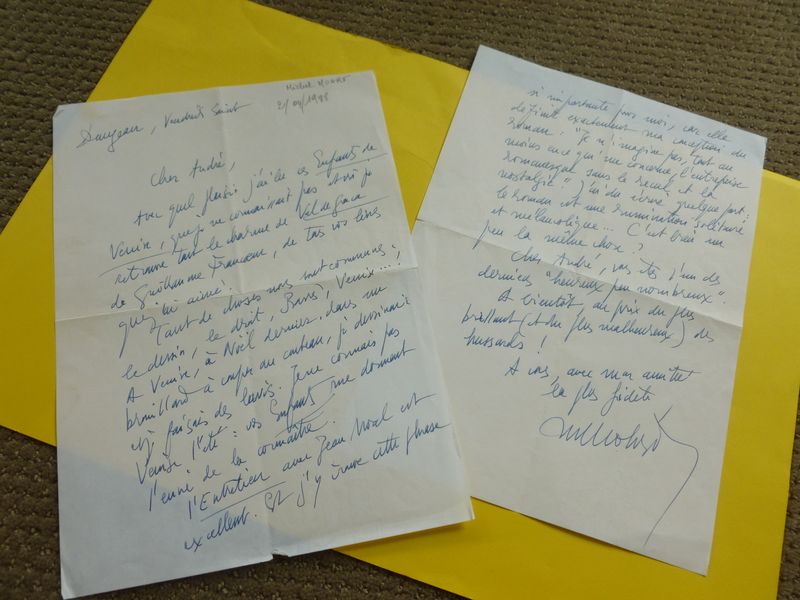 Michel MOHRT
2/04/1998
Vendredi Saint
Cher André,
Avec quel plaisir j'ai lu ces Enfants de
Venise, que je ne connaissais pas. Ainsi je
retrouve tout le charme de Val de Grâce
de Guillaume Francœur, de tous vos livres
que j'ai aimés.
Tant de choses nous sont communes :
le dessin, le droit, Barrès, Venise... !
A Venise, à Noël dernier, dans un
brouillard à couper au couteau, je dessinais
et faisais des lavis. Je ne connais pas
Venise l'été : vos Enfants me donnent
l'envie de la connaître.
l'Entretien avec Jean Moal est
excellent. Et j'y trouve cette phrase
si importante pour moi, car elle
définit exactement ma conception du
roman. "Je n'imagine pas, tout au
moins en ce qui me concerne, l'entreprise
romanesque sans le recul et la
nostalgie". J'ai dû écrire quelque part :
le roman est une rumination solitaire
et mélancolique... C'est bien un
peu la même chose ?
Cher André, vous êtes l'un des
derniers "heureux peu nombreux".
A bientôt, au prix du plus
brillant (et du plus malheureux) des
hussards !
A vous, avec mon amitié
la plus fidèle